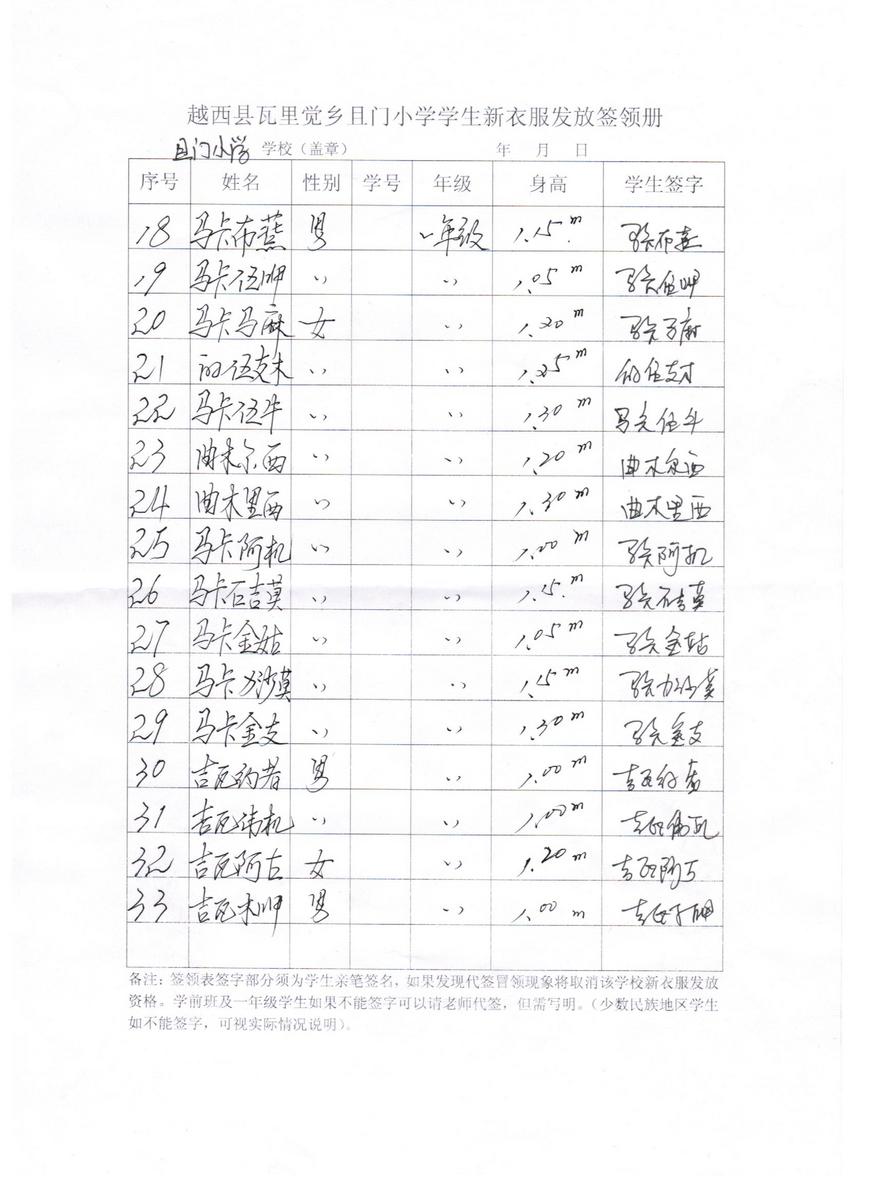 越西县瓦里觉乡且门小学学生新衣服发放签领册
且门小学 学校（盖章） 年 月 日
序号 姓名 性别 学号 年级 身高 学生签字
18 马卡布蒸 男 一年级 1.15m 马卡布蒸
19 马卡伍呷 〃 〃 1.05m 马卡伍呷
20 马卡马麻 女 〃 1.20m 马卡马麻
21 的伍支木 〃 〃 1.25m 的伍支木
22 马卡伍牛 〃 〃 1.30m 马卡伍牛
23 曲木尔西 〃 〃 1.20m 曲木尔西
24 曲木里西 〃 〃 1.30m 曲木里西
25 马卡阿机 〃 〃 1.00m 马卡阿机
26 马卡石吉莫 〃 〃 1.15.m 马卡石吉莫
27 马卡金姑 〃 〃 1.05m 马卡金姑
28 马卡力沙莫 〃 〃 1.15m 马卡力沙莫
29 马卡金支 〃 〃 1.30m 马卡金支
30 吉瓦约者 男 〃 1.00m 吉瓦约者
31 吉瓦伟机 〃 〃 1.00m 吉瓦伟机
32 吉瓦阿古 女 〃 1.20m
33 吉瓦木呷 男 〃 1.00m 吉瓦木呷
备注：签领表签字部分须为学生亲笔签名，如果发现代签冒领现象将取消该学校新衣服发放
资格。学前班及一年级学生如果不能签字可以请老师代签，但需写明。（少数民族地区学生
如不能签字，可视实际情况说明）。